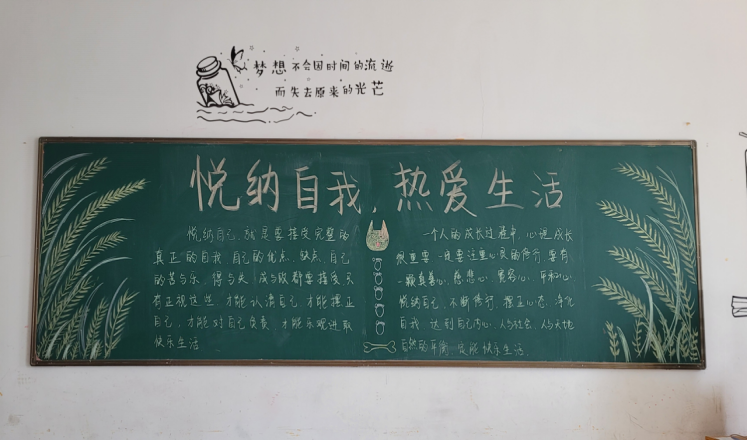 梦想不会因时间的流逝
而失去原来的光芒
悦纳自我，热爱生活
悦纳自己，就是要接受完整的
真正的自我，自己的优点、缺点、自己
的苦与乐、得与失、成与败都要接受只
有正视这些，才能认清自己，才能摆正
自己，才能对自己负责，才能乐观进取
快乐生活
一个人的成长过程中，心理成长
很重要，一定要注重心灵的修行，要有
一颗真善心、慈悲心、宽容心、平和心
悦纳自己，不断修行，摆正心态，净化
自我，达到自己内心、人与社会、人与天地
自然的平衡，快乐生活